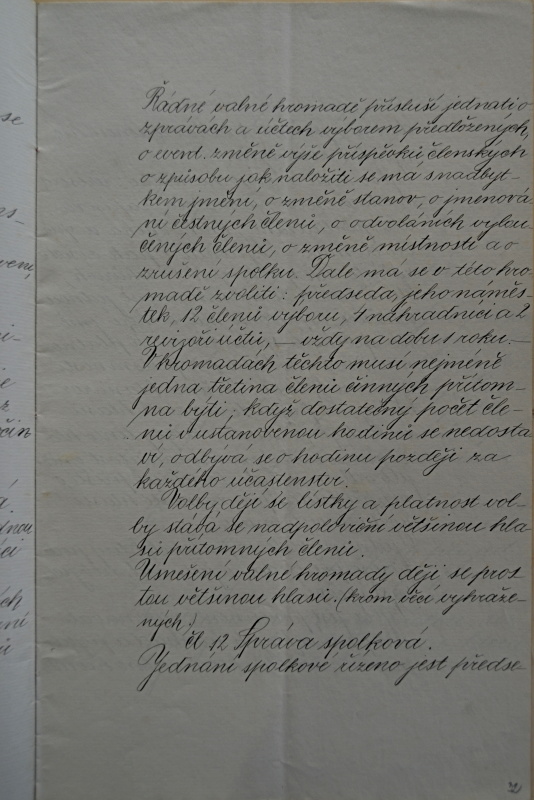 Řádné valné hromadě přísluší jednati o
zprávách a účtech výborem předložených,
o event. změně výši příspěvků členských
o způsobu jak naložiti se má s nadbyt-
kem jmění, o změně stanov, o jmenová
ní čestných členů, o odvoláních vylou
čených členů, o změně místností a o
zrušení spolku. Dále má se v této hro
madě zvoliti: předseda, jeho náměs
tek, 12 členů výboru, 4 náhradníci a 2
revizoři účtů, — vždy na dobu 1 roku. —
V hromadách těchto musí nejméně
jedna třetina členů činných přítom-
na býti; když dostatečný počet čle-
nů v ustanovenou hodinu se nedosta
ví, odbývá se o hodinu později za
každého účastenství.
Volby dějí se lístky a platnost vol-
by stává se nadpoloviční většinou hla
sů přítomných členů.
Usnešení valné hromady ději se pros
tou většinou hlasů. (krom věcí vyhraže-
ných.)
čl 12 Správa spolková.
Jednání spolkové řízeno jest předse